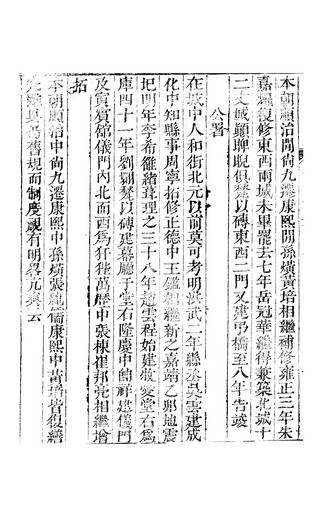 本朝順治間尚九遷康熙間孫爌黃培相繼補修雍正三年朱
嘉燿復修東西兩城未畢罷去七年岳冠華繼得兼築北城十
二丈城顯睥睨俱甃以磚東西二門又建弔橋至八年告竣
公署
在城中人和街北元以前莫可考明洪武二年縣丞吳雲建成
化中知縣事周寧拓修正德中王鑑相繼新之嘉靖乙卯地震
圮明年李希雒緒葺理之三十八年趙雲程始建牧愛堂右為
庫四十一年劉翾甃以磚建幕廳于堂右隆慶中師祥建儀門
及寅賓舘儀門內北而西為犴狴萬歷中張棟崔邦亮相繼增
拓
本朝順治中尚九遷孫爌張儒康熙中黃培皆復繕
舊規而制度視有明畧亢爽云